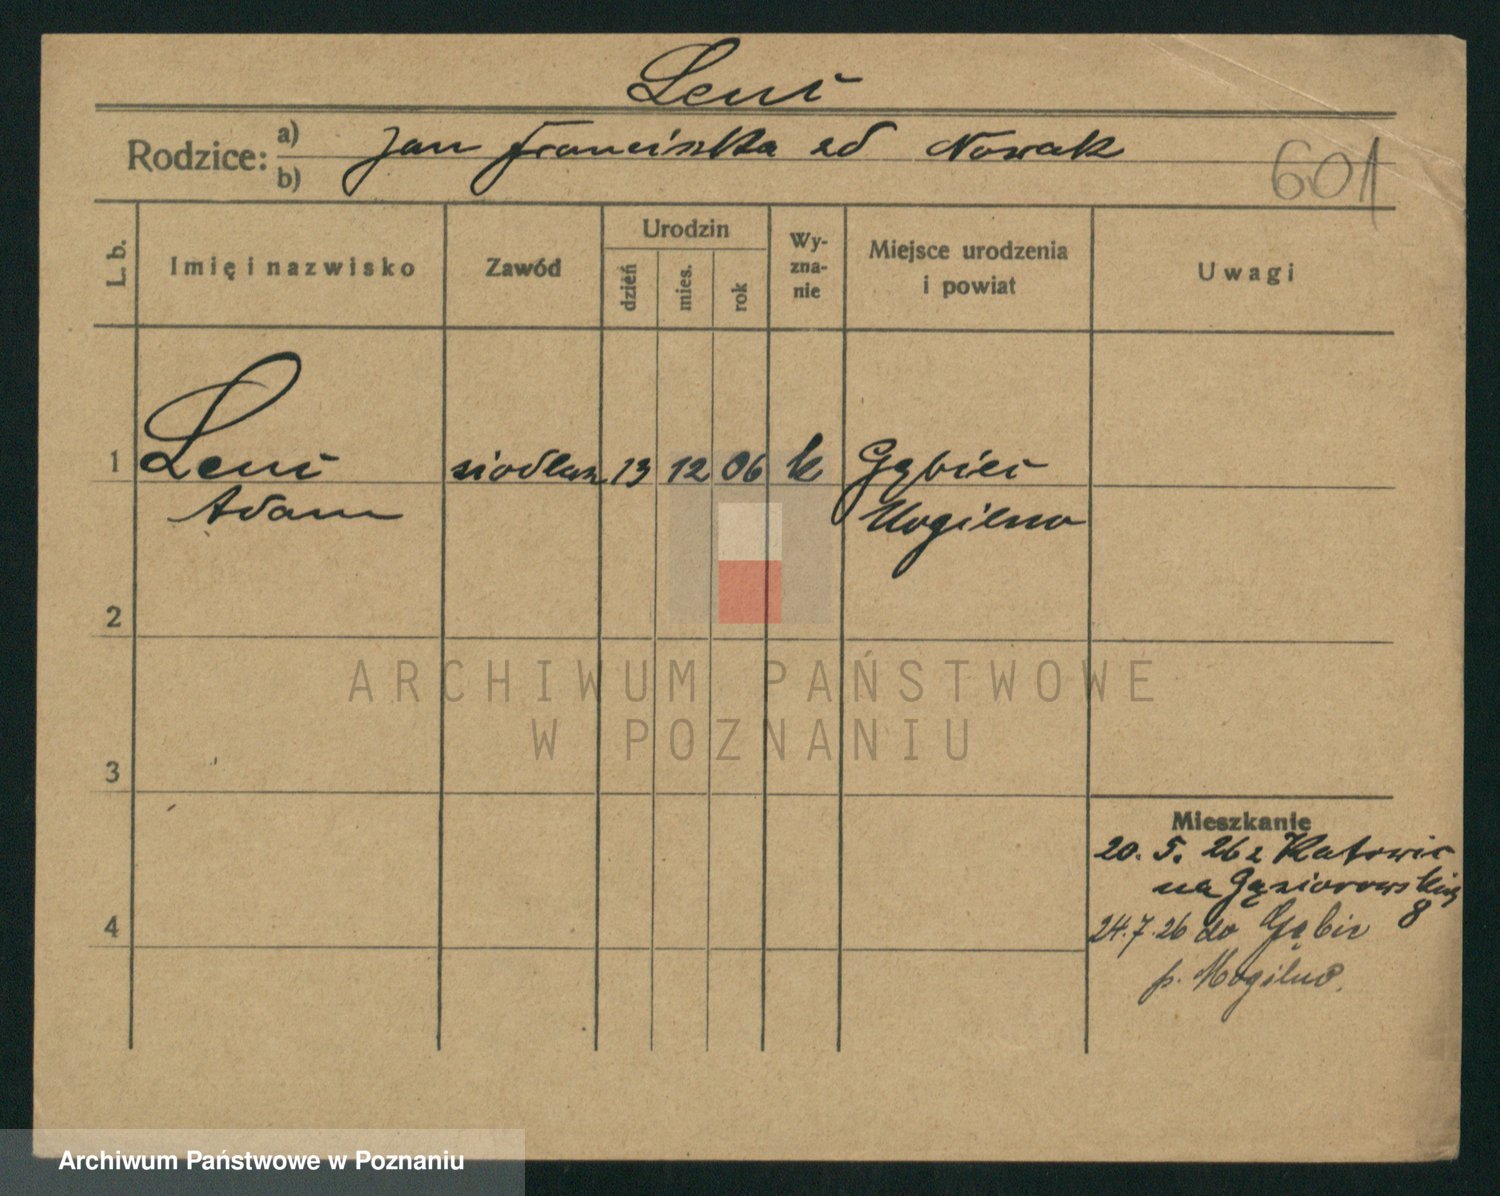 Leuś
Rodzice: a) Jan Franciszka zd Nowak
b)
601
L. b.
Imię i nazwisko
Zawód
Urodzin
dzień
mies.
rok
Wy-
zna-
nie
Miejsce urodzenia
i powiat
Uwagi
1 Leuś siodlarz 13 12 06 k Gębice
Adam Mogilno
2
3
4
Mieszkanie
20. 5. 26 z Katowic
na Gąsiorowskich
8
24.7.26 do Gębic
p. Mogilno.
ARCHIWUM PAŃSTWOWE
W POZNANIU
Archiwum Państwowe w Poznaniu